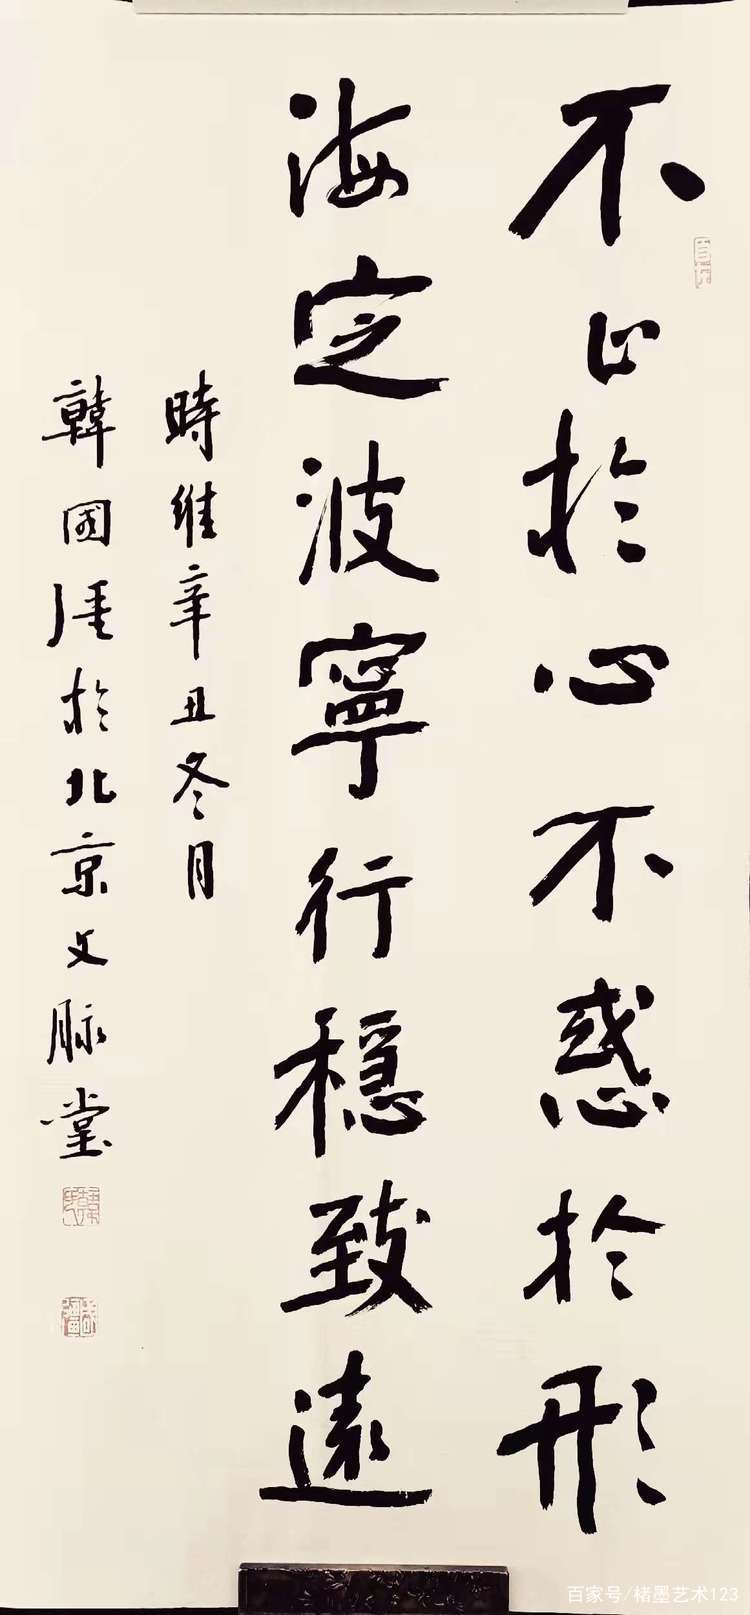 不止於心不惑於形
海定波寧行穩致遠
時維辛丑冬月
韓國於北京文脉堂
百家号/楮墨艺术123